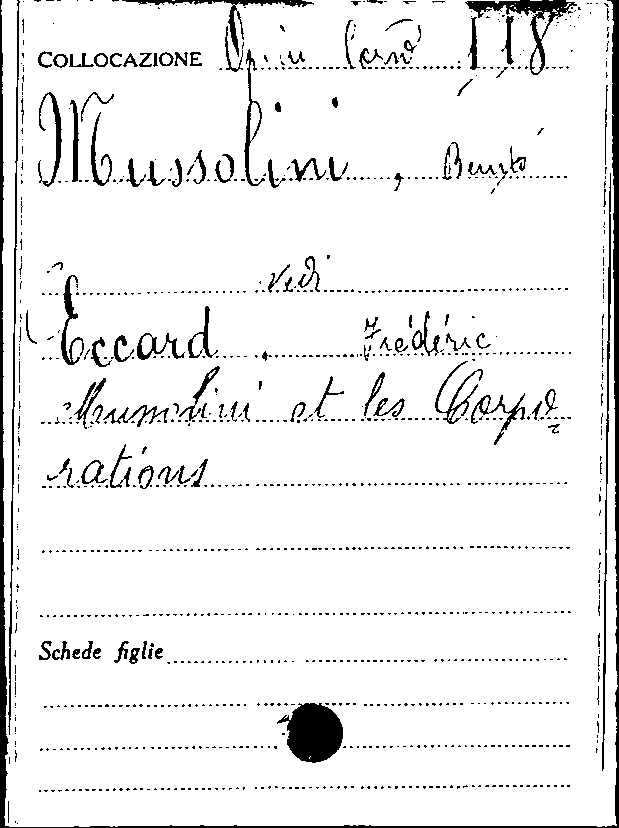 COLLOCAZIONE 118
Mussolini, Benito
vedi
Eccard, Frédéric
Mussolini et les Corpo=
rations
Schede figlie